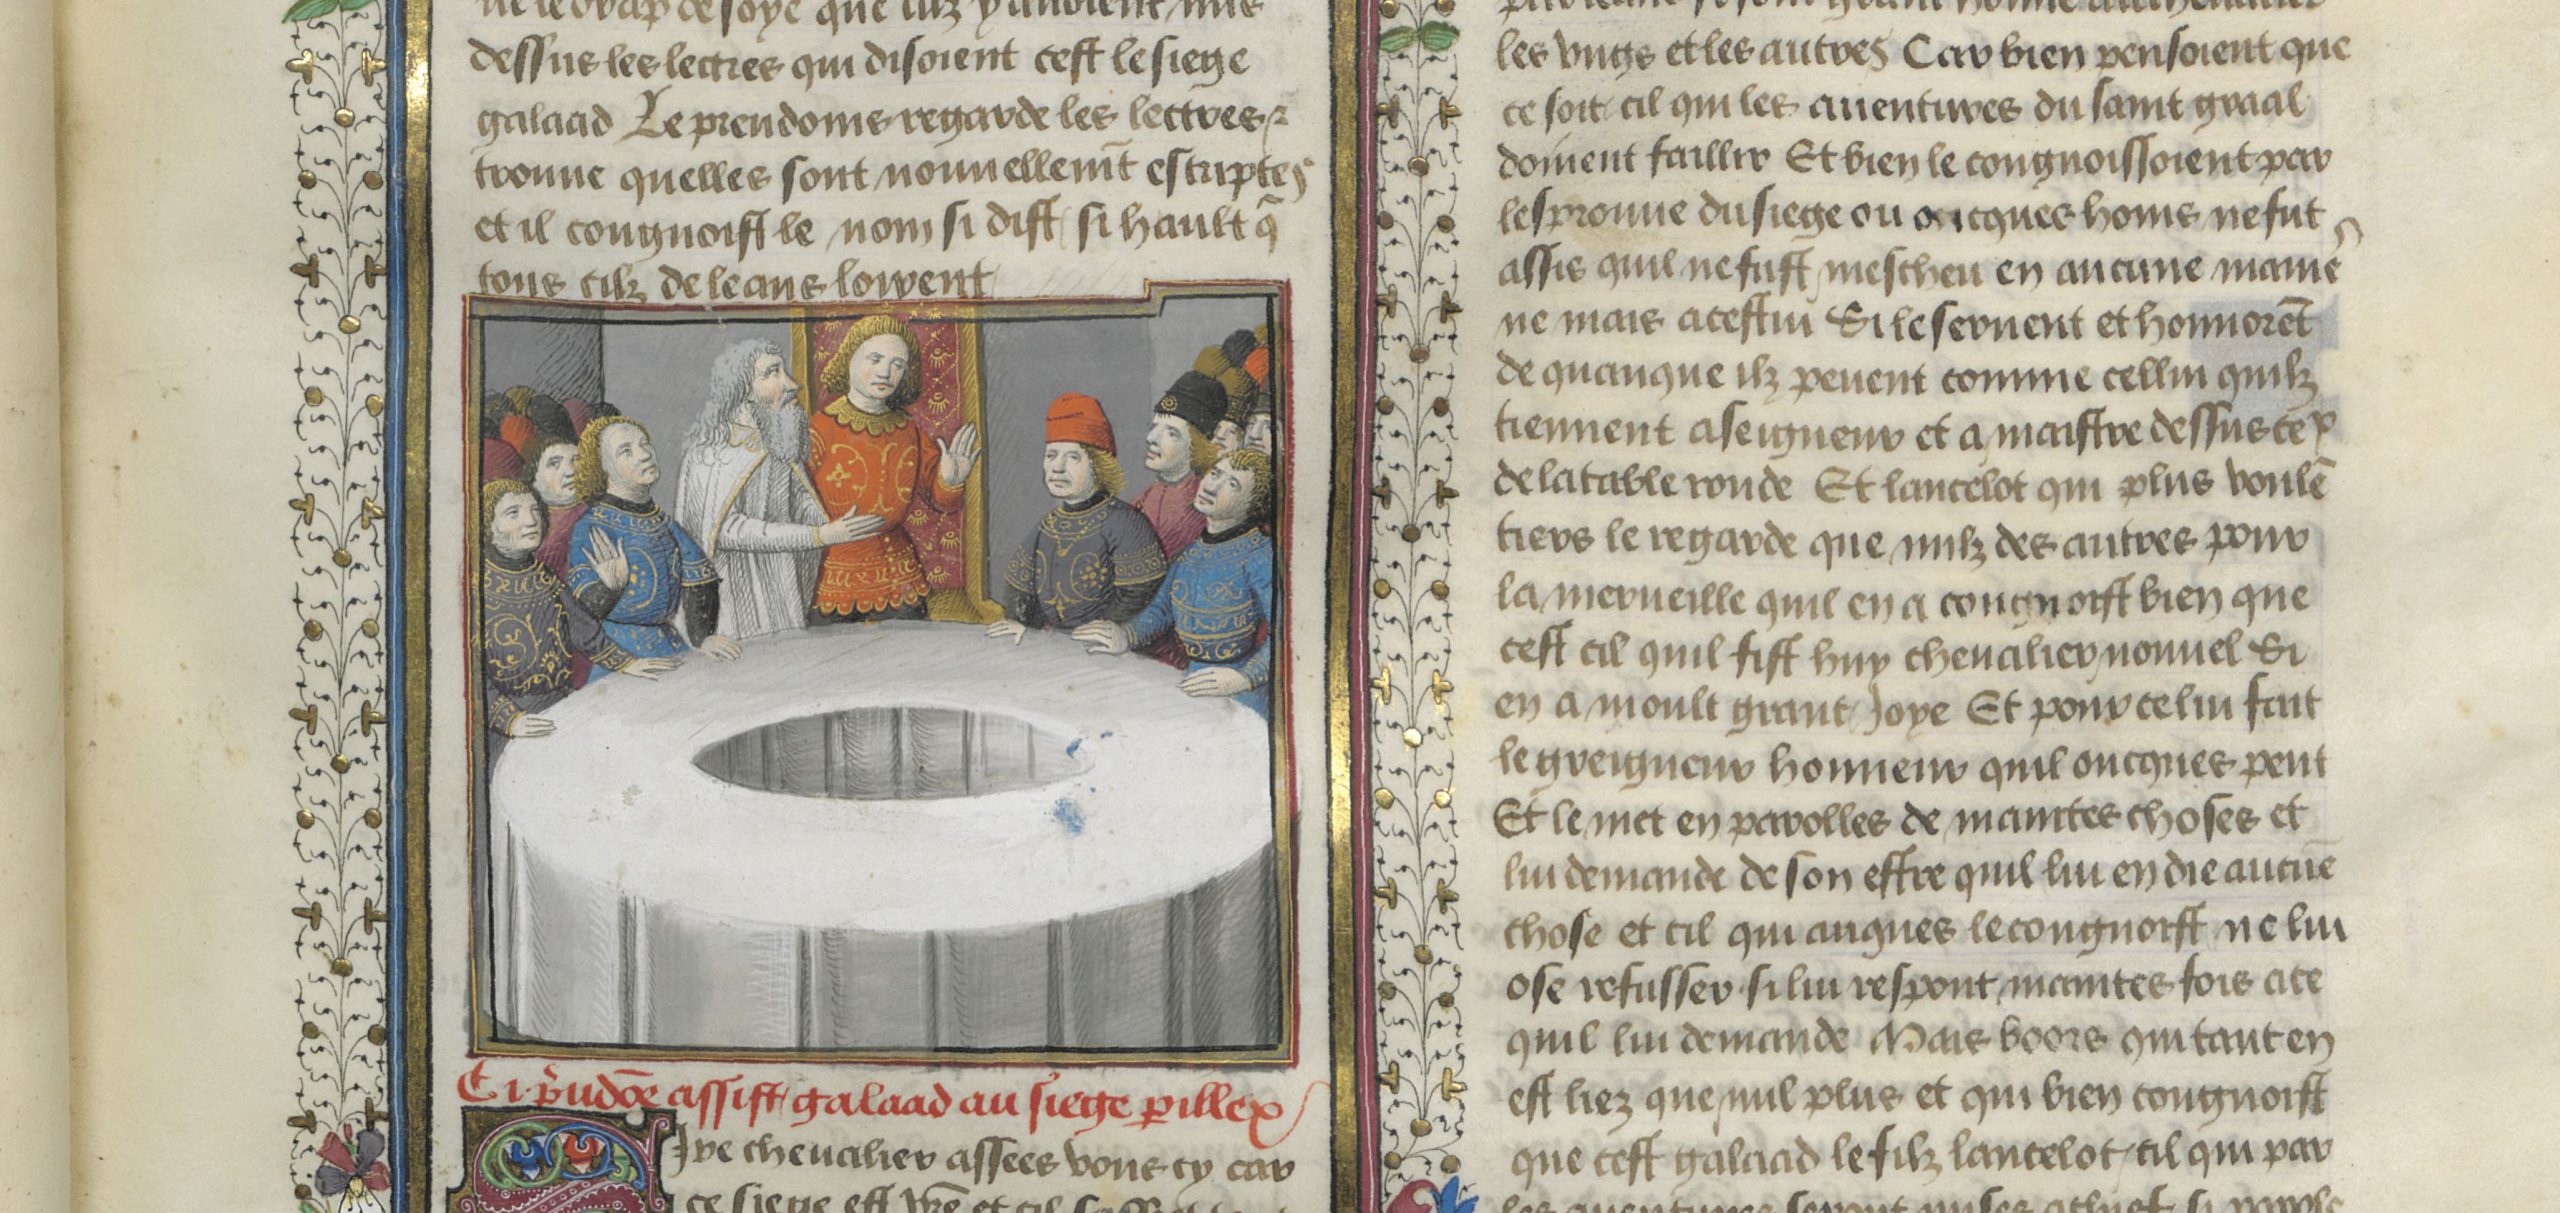 ne le drap de soye que ilz y auoient mis
dessus les lectres qui disoient cest le siege
galaad Le preudoms regarde les lectres z
trouue quelles sont nouuellemt̄ escriptes
et il congnoist le nom si dist si hault q̄
tous cilz de leans loirent
Ci p̄udōe assist galaad au siege pillex
Sire cheualier assees vous cy car
ce siege est vr̄e et cil
les vngs et les autres Car bien pensoient que
ce soit cil qui les auentures du saint graal
doiuent faillir Et bien le congnoissoient par
lesprouue du siege ou oncques homs ne fut
assis quil ne fust mescheu en aucune manie
ne mais a cestui Si le seruent et honnorēt
de quanque ilz peuent comme cellui quilz
tiennent a seigneur et a maistre dessus cex
de la table ronde Et lancelot qui plus voulē
tiers le regarde que nulz des autres pour
la merueille quil en a congnoist bien que
cest cil quil fist huy cheualier nouuel Si
en a moult grant Joye Et pour ce lui fait
le greigneur honneur quil oncques peut
Et le met en parolles de maintes choses et
lui demande de son estre quil lui en die aucūe
chose et cil qui auques le congnoist ne lui
ose refusser si lui respont maintes fois a ce
quil lui demande Mais boors qui tant en
est liez que nul plus et qui bien congnoist
que cest galaad le filz lancelot cil qui par
les auentures seront mises a chief si parole